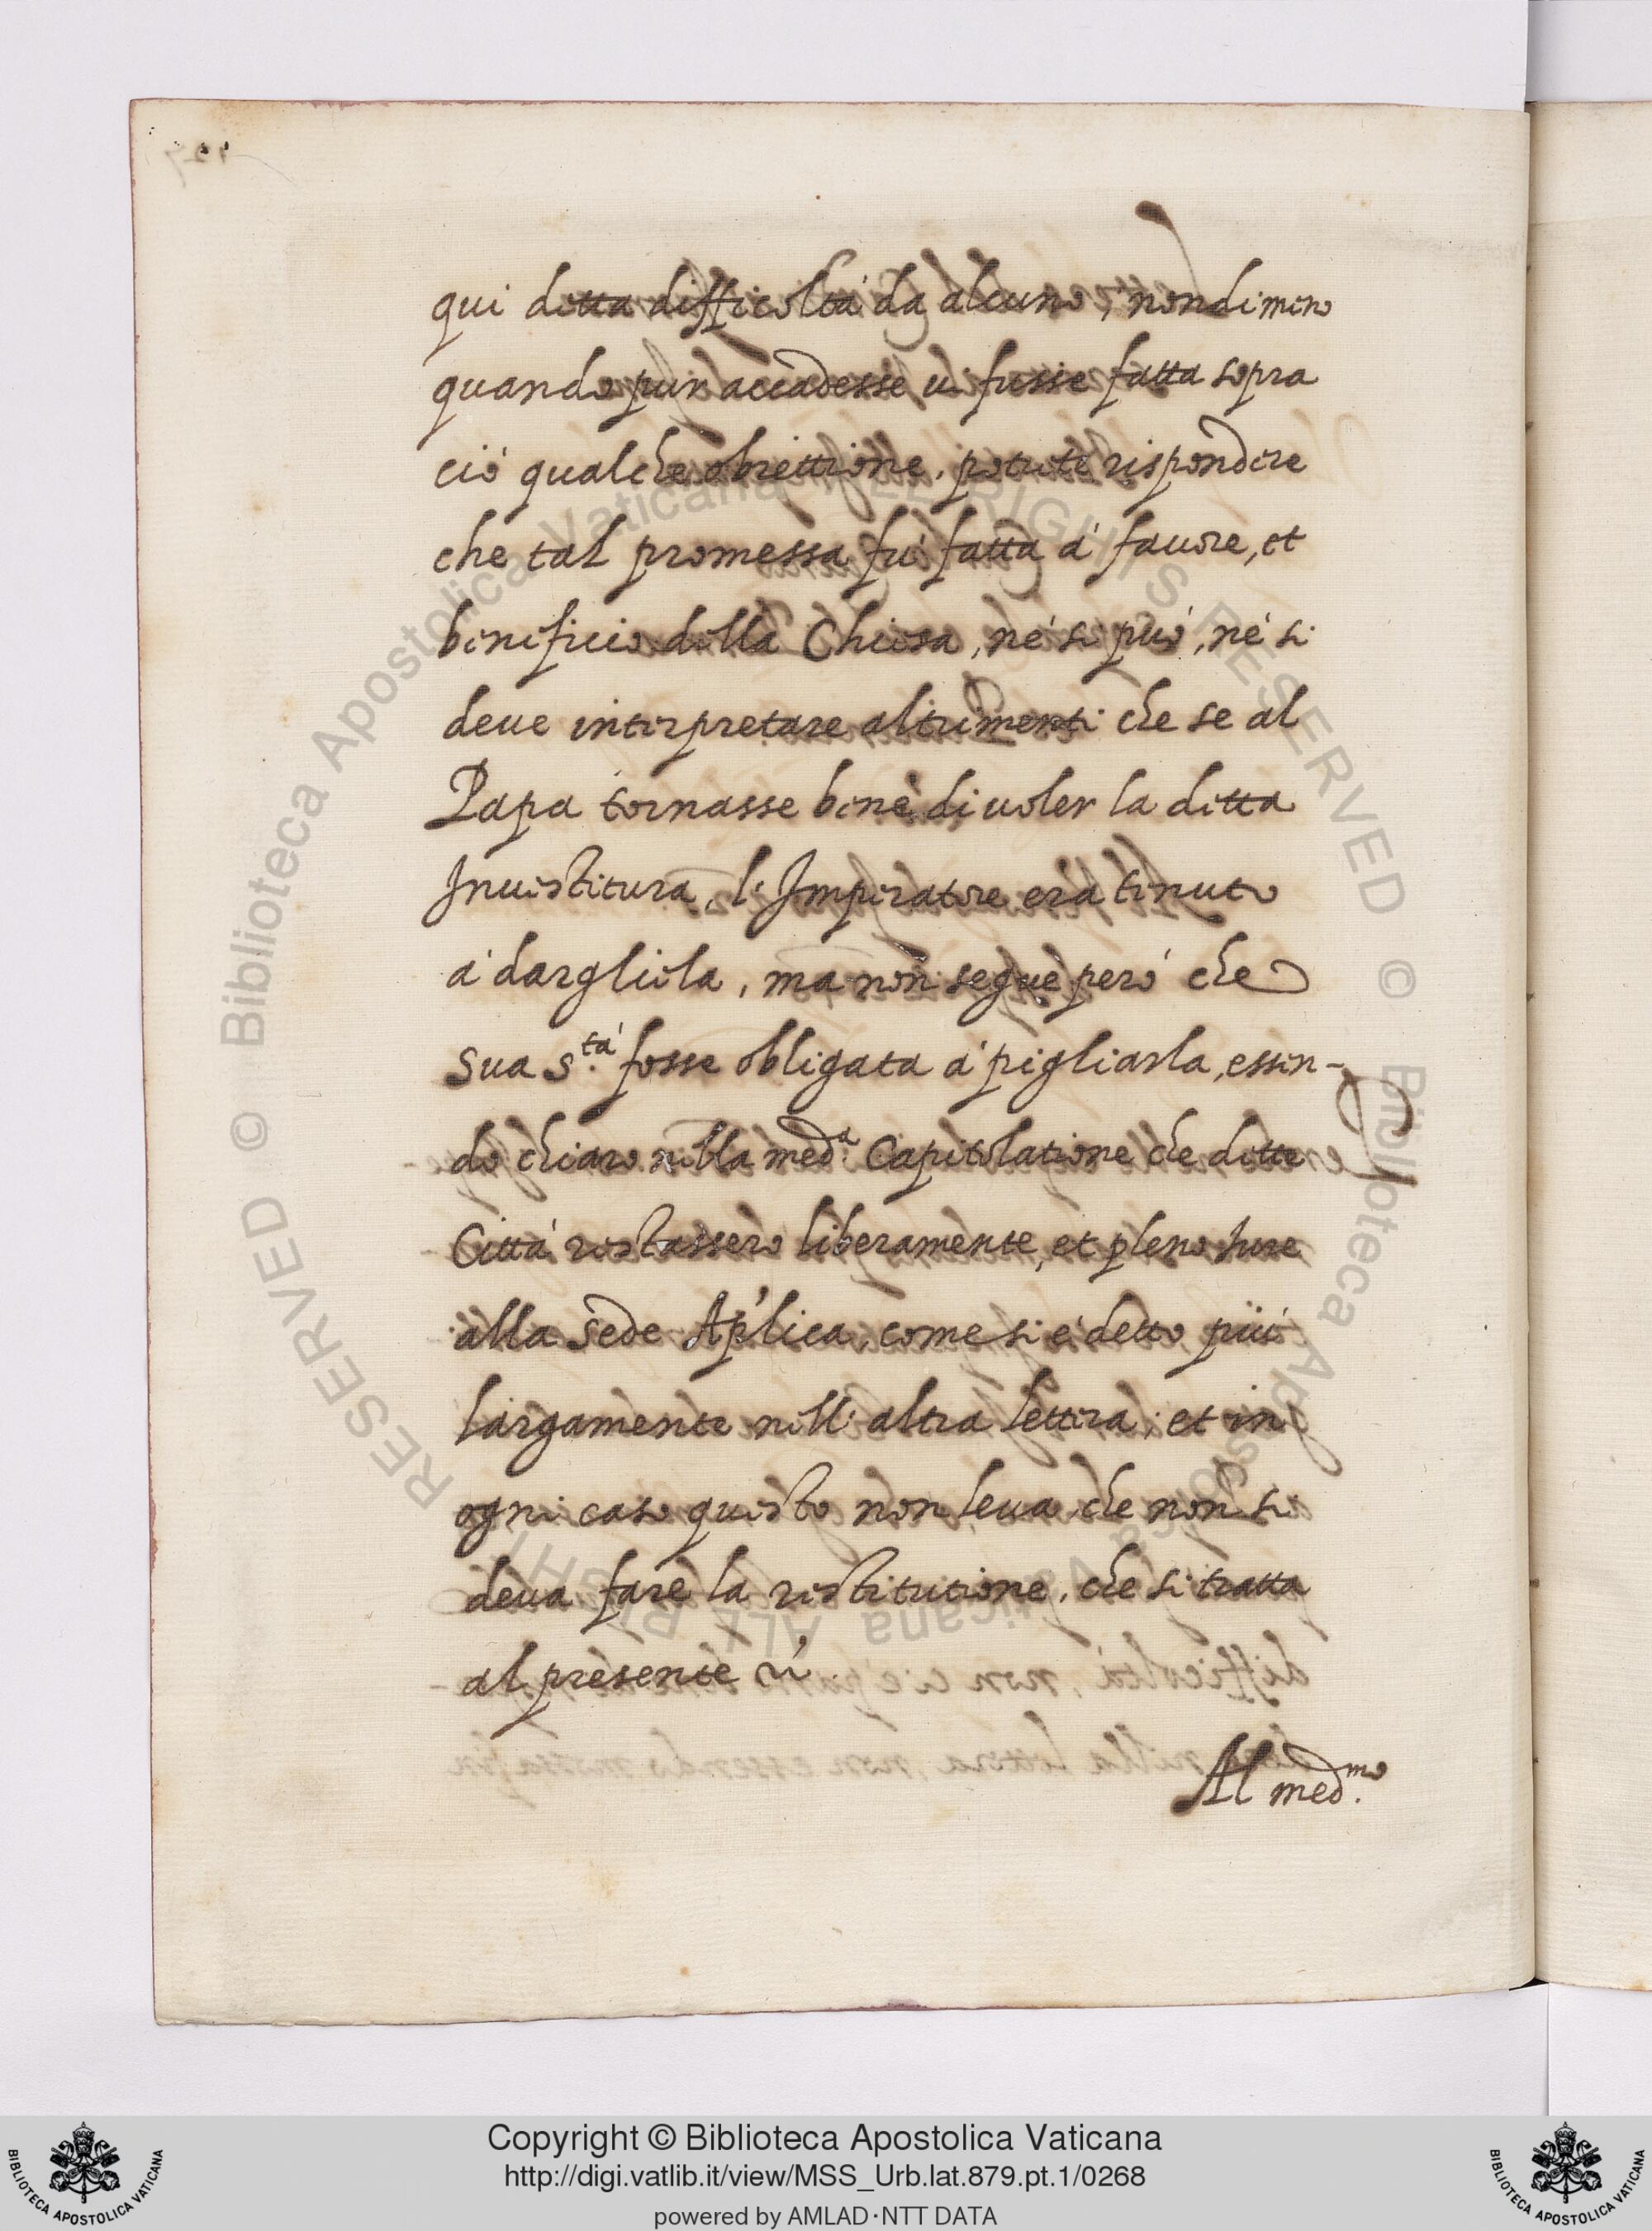 qui detta difficoltà da alcuno, nondimeno
quando pur accadesse vi fusse fatta sopra
ciò qualche obiettione, potrete rispondere
che tal promessa fù fatta à fauore, et
beneficio della Chiesa, nè si può, nè si
deue interpretare altrimenti che se al
Papa tornasse bene di uoler la detta
Inuestitura, l'Imperatore era tenuto
à dargliela, ma non segue però che
sua S.tà fosse obligata à pigliarla, essen-
do chiaro nella med.a Capitolatione che dette
Città restassero liberamente, et pleno Iure
alla sede Ap'lica, come si è detto più
largamente nell'altra lettera; et in
ogni caso questo non leua che non si
deua fare la restitutione, che si tratta
al presente
Al med.mo
© Biblioteca Apostolica Vaticana ALL RIGHTS RESERVED © Biblioteca Apostolica Vaticana ALL RIGHTS RESERVED
Copyright © Biblioteca Apostolica Vaticana
http://digi.vatlib.it/view/MSS_Urb.lat.879.pt.1/0268
powered by AMLAD·NTT DATA
BIBLIOTECA APOSTOLICA VATICANA
BIBLIOTECA APOSTOLICA VATICANA